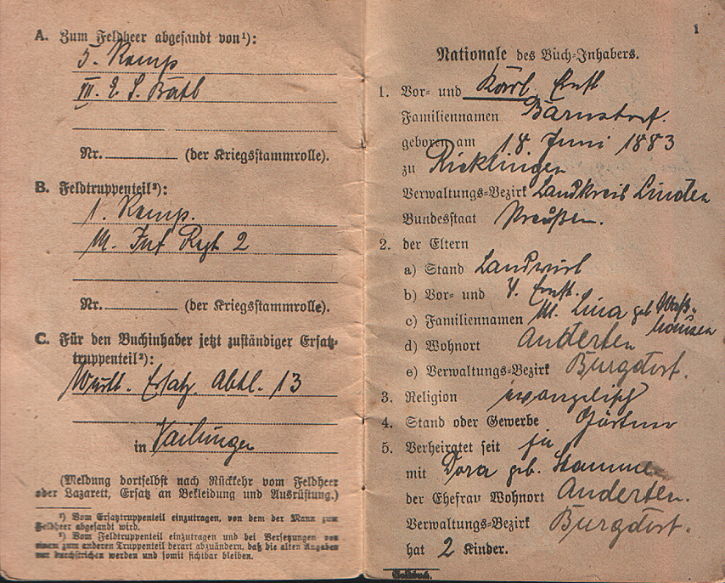 A. Zum Feldheer abgesandt von¹):
5. Komp
III. E. I. Batl
Nr. (der Kriegsstammrolle).
B. Feldtruppenteil²):
1. Komp.
Inf Regt 2
Nr. (der Kriegsstammrolle).
C. Für den Buchinhaber jetzt zuständiger Ersatz-
truppenteil²):
Württ. Ersatz Abtl. 13
in Vaihingen
(Meldung dortselbst nach Rückkehr vom Feldheer
oder Lazarett, Ersatz an Bekleidung und Ausrüstung.)
¹) Vom Ersatztruppenteil einzutragen, von dem der Mann zum
Feldheer abgesandt wird.
²) Vom Feldtruppenteil einzutragen und bei Versetzungen von
einem zum anderen Truppenteil derart abzuändern, daß die alten Angaben
nur durchstrichen werden und somit sichtbar bleiben.
1
Nationale des Buch-Inhabers.
1. Vor- und Karl Ernst
Familiennamen Bärnstorf.
geboren am 18. Juni 1883
zu Ricklingen
Verwaltungs-Bezirk Landkreis Linden
Bundesstaat Preußen.
2. der Eltern
a) Stand Landwirt
b) Vor- und V. Ernst.
c) Familiennamen M. Lina geb
hausen
d) Wohnort Anderten
e) Verwaltungs-Bezirk Burgdorf.
3. Religion evangelisch
4. Stand oder Gewerbe Gärtner
5. Verheiratet seit ja
mit Dora geb. Stamme
der Ehefrau Wohnort Anderten.
Verwaltungs-Bezirk Burgdorf.
hat 2 Kinder.
Soldbuch.